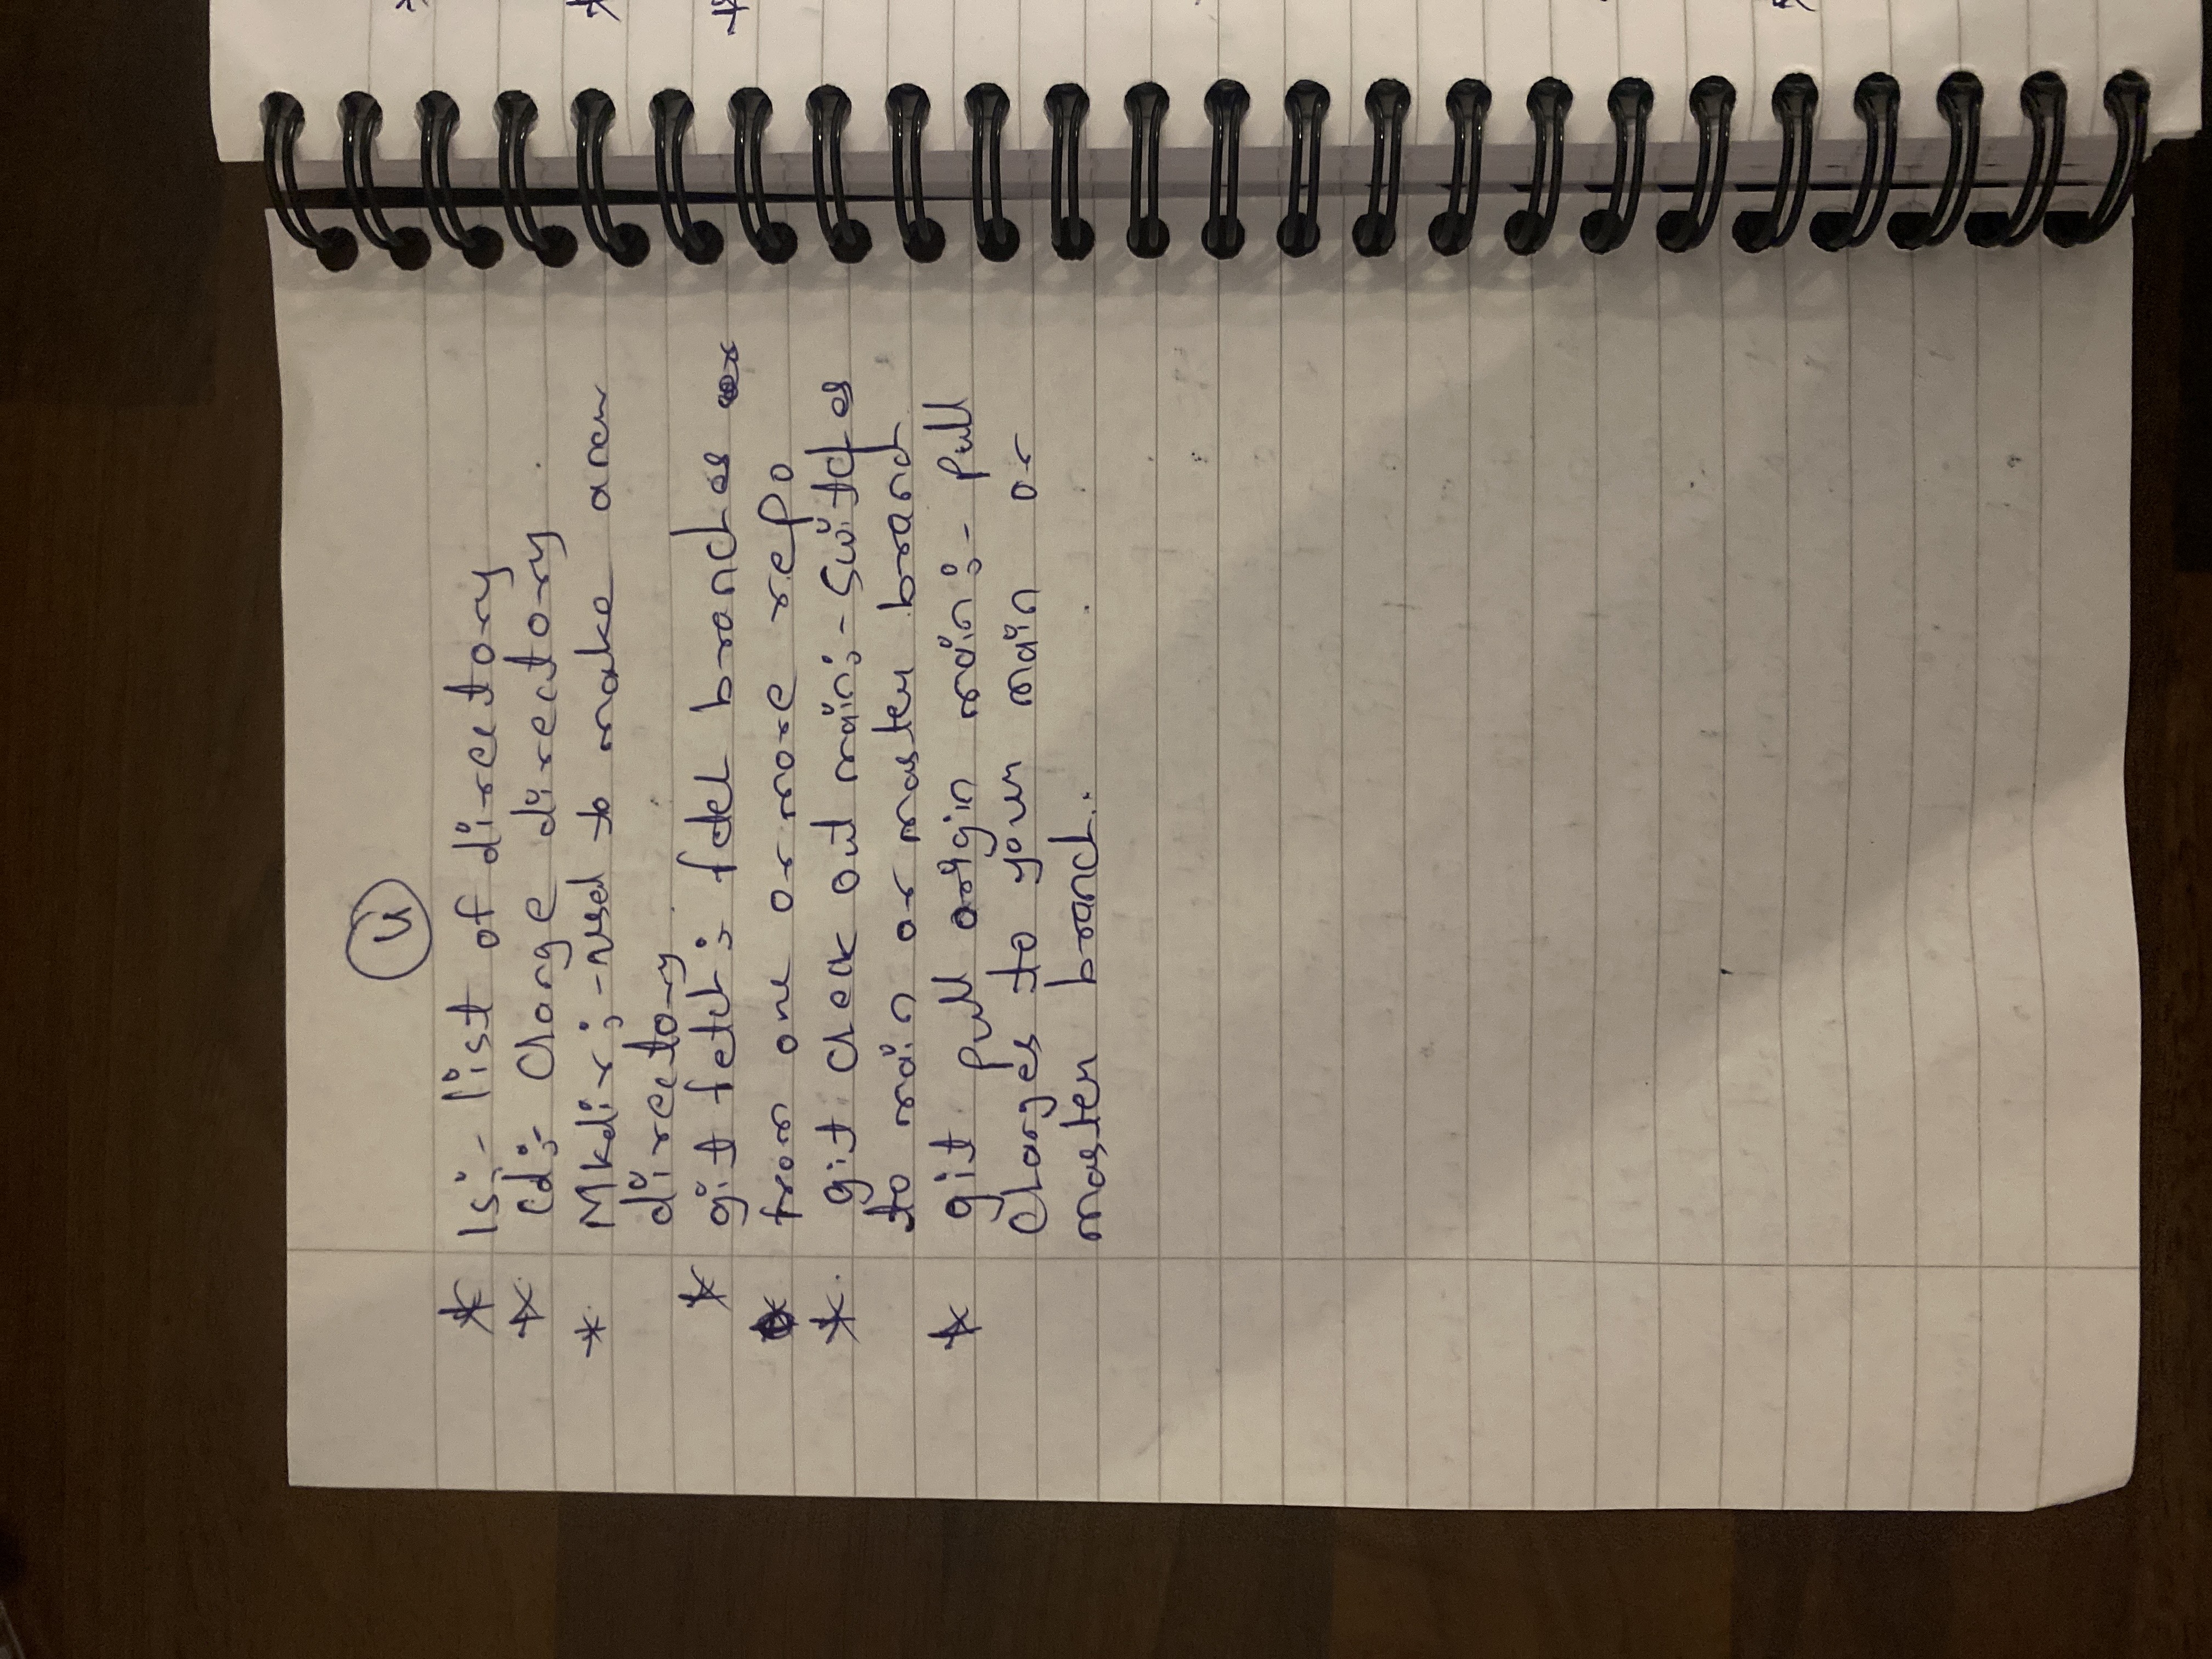 4
* ls:- list of directory
* Cd:- Change directory
* Mkdir:- used to make a new
directory
* git fetch: fetch branches
from one or more repo
* git check out main:- Switches
to main or master branch
* git pull origin main:- pull
Changes to your main or
master branch.
*
*
*